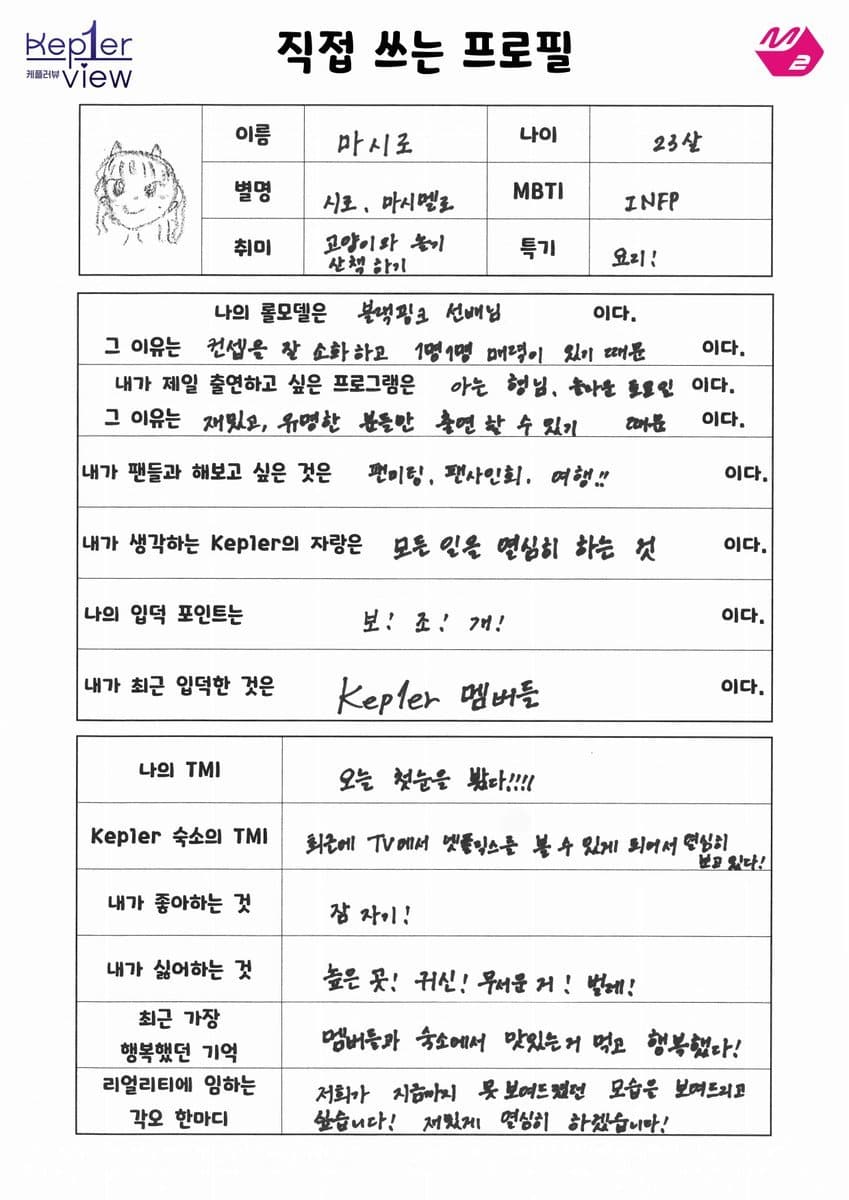 Kep1er
케플러뷰 view
직접 쓰는 프로필
M2
이름 마시로 나이 23살
별명 시로, 마시멜로 MBTI INFP
취미 고양이와 놀기
산책하기 특기 요리!
나의 롤모델은 블랙핑크 선배님 이다.
그 이유는 컨셉을 잘 소화하고 1명1명 매력이 있기 때문 이다.
내가 제일 출연하고 싶은 프로그램은 아는 형님, 놀라운 토요일 이다.
그 이유는 재밌고, 유명한 분들만 출연 할 수 있기 때문 이다.
내가 팬들과 해보고 싶은 것은 팬미팅, 팬사인회, 여행!! 이다.
내가 생각하는 Kep1er의 자랑은 모든 일을 열심히 하는 것 이다.
나의 입덕 포인트는 보! 조! 개! 이다.
내가 최근 입덕한 것은 Kep1er 멤버들 이다.
나의 TMI 오늘 첫눈을 봤다!!!!
Kep1er 숙소의 TMI 최근에 TV에서 넷플릭스를 볼 수 있게 되어서 열심히
보고 있다!
내가 좋아하는 것 잠 자기!
내가 싫어하는 것 높은 곳! 귀신! 무서운 거! 벌레!
최근 가장
행복했던 기억 멤버들과 숙소에서 맛있는거 먹고 행복했다!
리얼리티에 임하는 저희가 지금까지 못 보여드렸던 모습을 보여드리고
각오 한마디 싶습니다! 재밌게 열심히 하겠습니다!